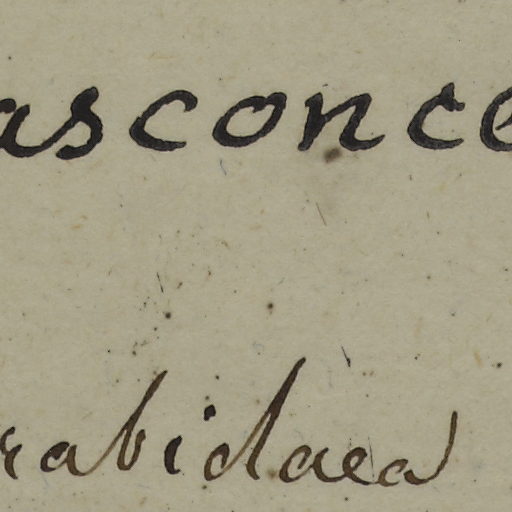 asconce
rabidaea